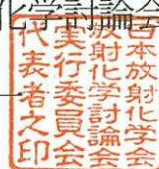 化学討論会
日本放射化学会
放射化学討論会
実行委員会
代表者之印